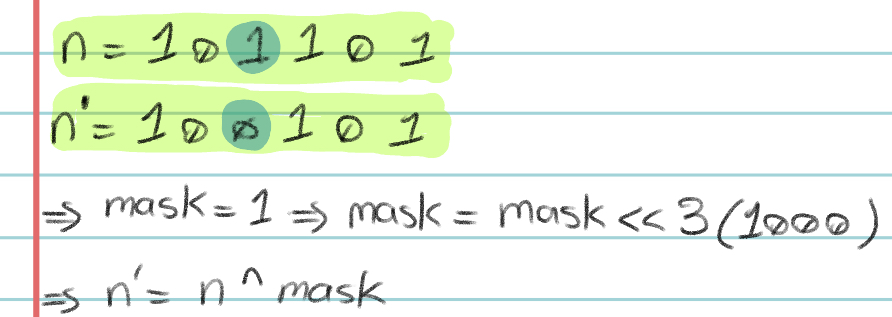 n = 1 0 1 1 0 1
n' = 1 0 0 1 0 1
⇒ mask = 1 ⇒ mask = mask << 3 (1000)
⇒ n' = n ^ mask